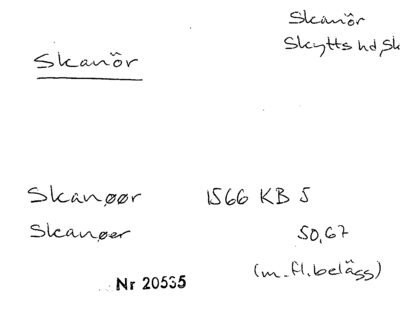 Skanör
Skytts hd, Sk
Skanör
Skanøør 1566 KB 5
Skanøer 50,67
(m.fl.belägg)
Nr 20535